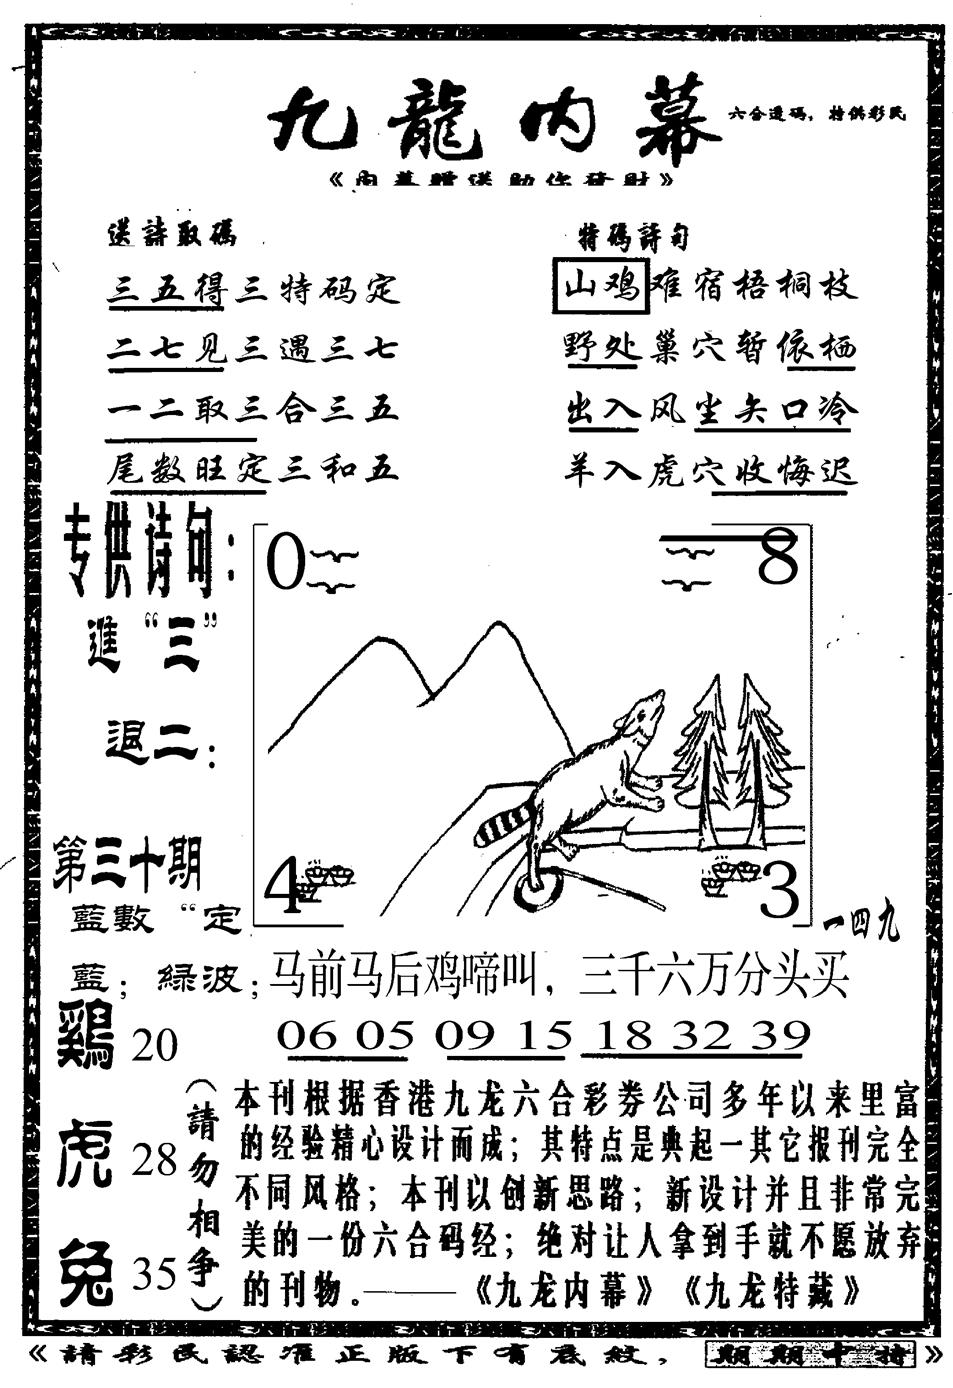 九龍内幕
六合透码，特供彩民
《内幕赠送助你发财》
送詩取碼
三五得三特码定
二七见三遇三七
一二取三合三五
尾数旺定三和五
特碼詩句
山鸡难宿梧桐枝
野处巢穴暂依栖
出入风尘矢口冷
羊入虎穴收悔迟
专供诗句：
進“三”
退二：
第三十期
藍數“定
藍；綠波；
0
8
4
3
一四九
马前马后鸡啼叫，三千六万分头买
06 05 09 15 18 32 39
鷄 20
虎 28
兔 35
（請勿相争）
本刊根据香港九龙六合彩券公司多年以来里富
的经验精心设计而成；其特点是典起一其它报刊完全
不同风格；本刊以创新思路；新设计并且非常完
美的一份六合码经；绝对让人拿到手就不愿放弃
的刊物。——《九龙内幕》《九龙特藏》
《請彩民認准正版下有底紋，期期中特》